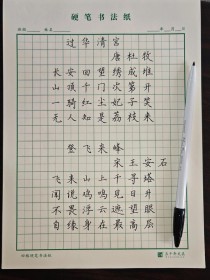 硬笔书法纸
年 月 日
过华清宫
唐杜牧
长安回望绣成堆
山顶千门次第开
一骑红尘妃子笑
无人知是荔枝来
登飞来峰
宋王安石
飞来山上千寻塔
闻说鸡鸣见日升
不畏浮云遮望眼
自缘身在最高层